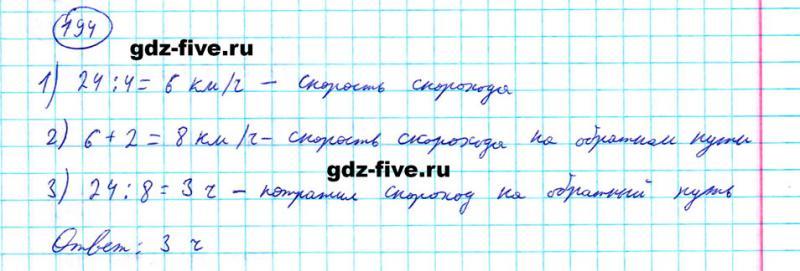 494
gdz-five.ru
1) 24 : 4 = 6 км/ч – скорость скорохода
2) 6 + 2 = 8 км/ч – скорость скорохода на обратном пути
gdz-five.ru
3) 24 : 8 = 3 ч – потратил скороход на обратный путь
Ответ: 3 ч